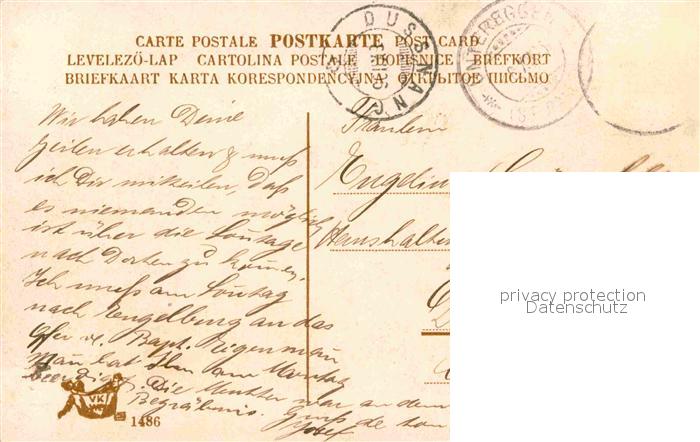 CARTE POSTALE POSTKARTE POST CARD
LEVELEZŐ-LAP CARTOLINA POSTALE DOPISNICE BREFKORT
BRIEFKAART KARTA KORESPONDENCYJNA ОТКРЫТОЕ ПИСЬМО
DUSSNANG
UNTEREGGEN
Wir haben Deine
Zeilen erhalten & muß
ich Dir mitteilen, daß
es niemanden möglich
ist über die Sontage
nach Dorten zu kommen.
Ich muß am Sontag
nach Engelberg an das
v. Bapt. Eigenman
Man hat Ihn am Montag
beerdigt. Die Mutter war an dem
Begräbnis. Gruß
Josef
Fräulein
Haushälterin
privacy protection
Datenschutz
VK
1486